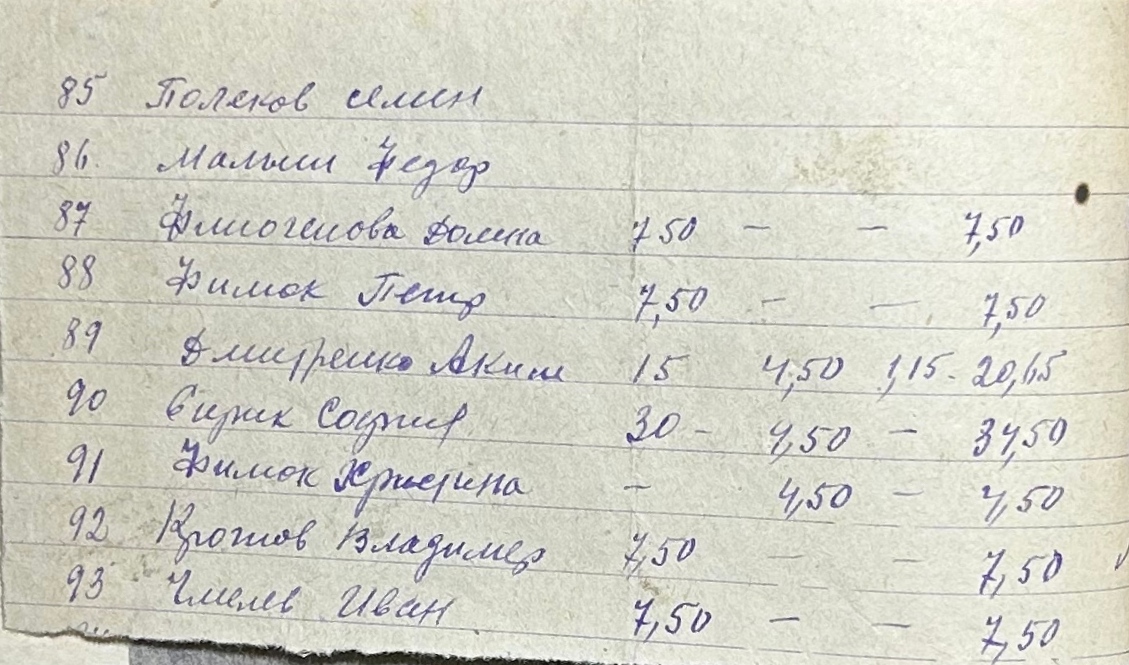 85 Поляков Семен
86. Малыш Федор
87 Домна 7,50 — — 7,50
88 Фимок Петр 7,50 — — 7,50
89 Дмитренко Аким 15 4,50 1,15 - 20,65
90 София 30 - 4,50 — 34,50
91 Фимок Христина — 4,50 — 4,50
92 Владимер 7,50 — — 7,50
93 Чмелев Иван 7,50 — — 7,50